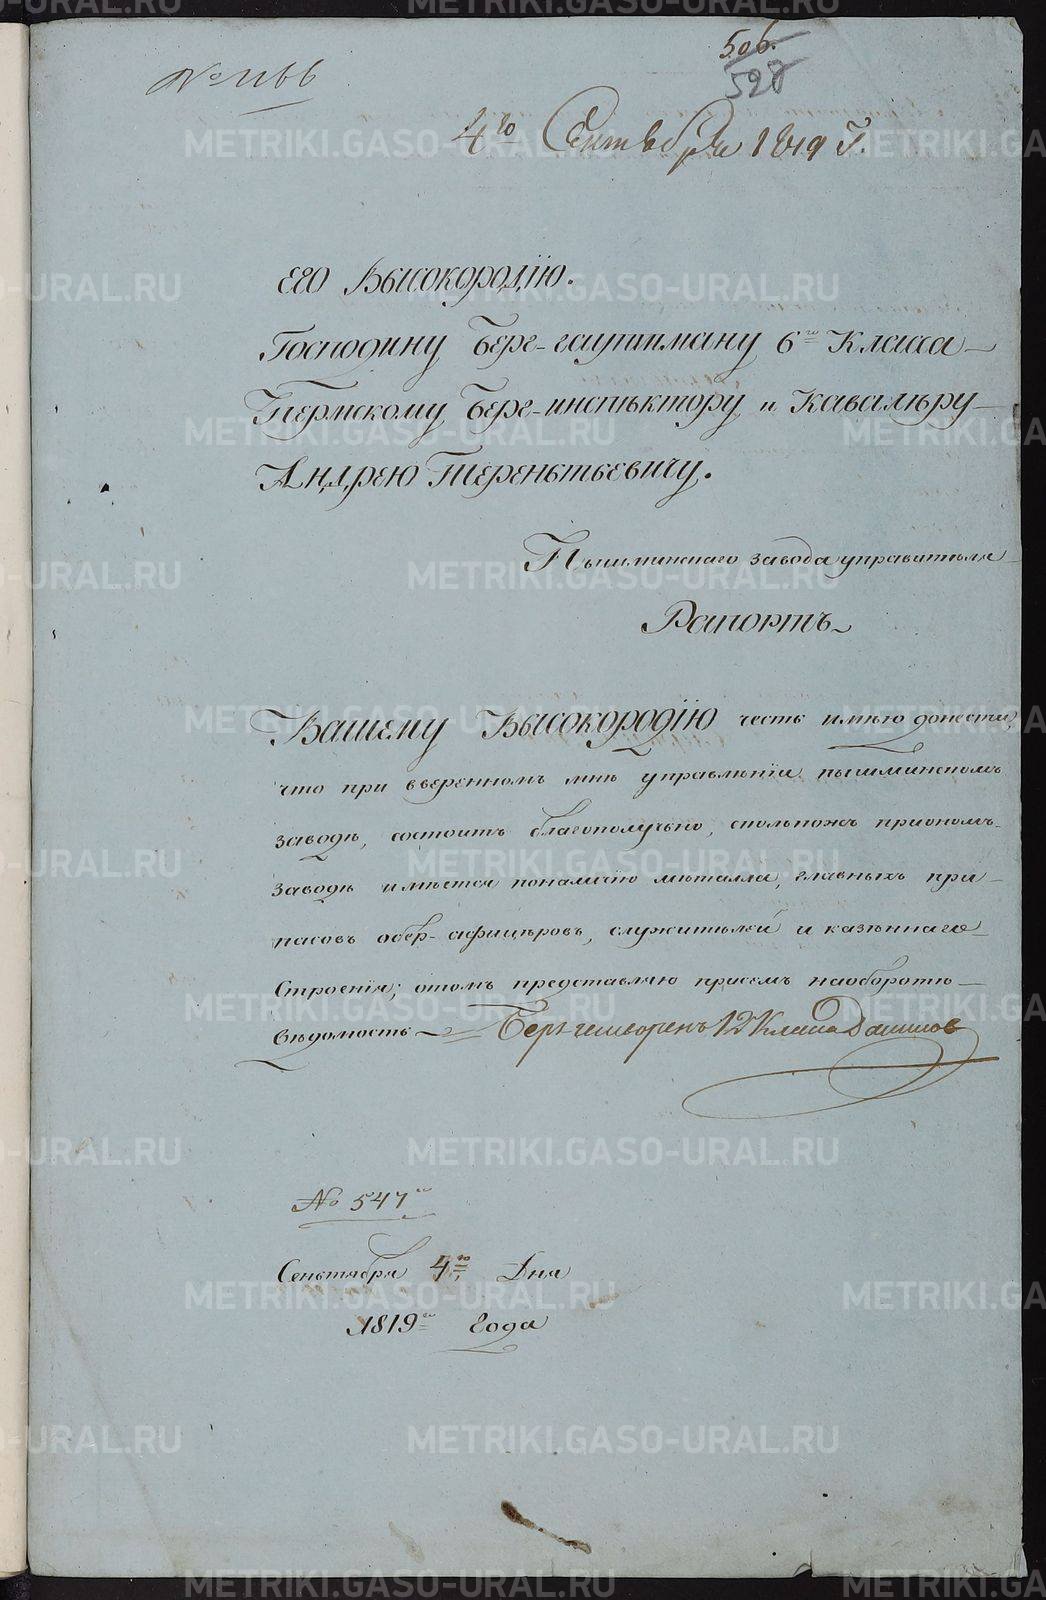 506.
528
№ 1166
4го Сентября 1819 Г.
Его Высокородію.
Господину Берг-гауптману 6го Класса
Пермскому Берг-инспѣктору и Кавалѣру
Андрею Терентьевичу.
Пышминскаго завода управителя
Рапортъ
Вашему Высокородію честь имѣю донести,
что при вверенномъ мнѣ управлѣніи пышминскомъ
заводѣ, состоитъ благополучно, сколькожъ приономъ
заводѣ имѣется поналичію мѣталла, главныхъ при-
пасовъ обер-афицѣровъ, служитѣлей и казѣннаго
Строенія; отомъ представляю присемъ наоборотѣ
вѣдомость Берг гешворенъ 12 Класса
№ 547го
Сентября 4го Дня
1819го Года
METRIKI.GASO-URAL.RU